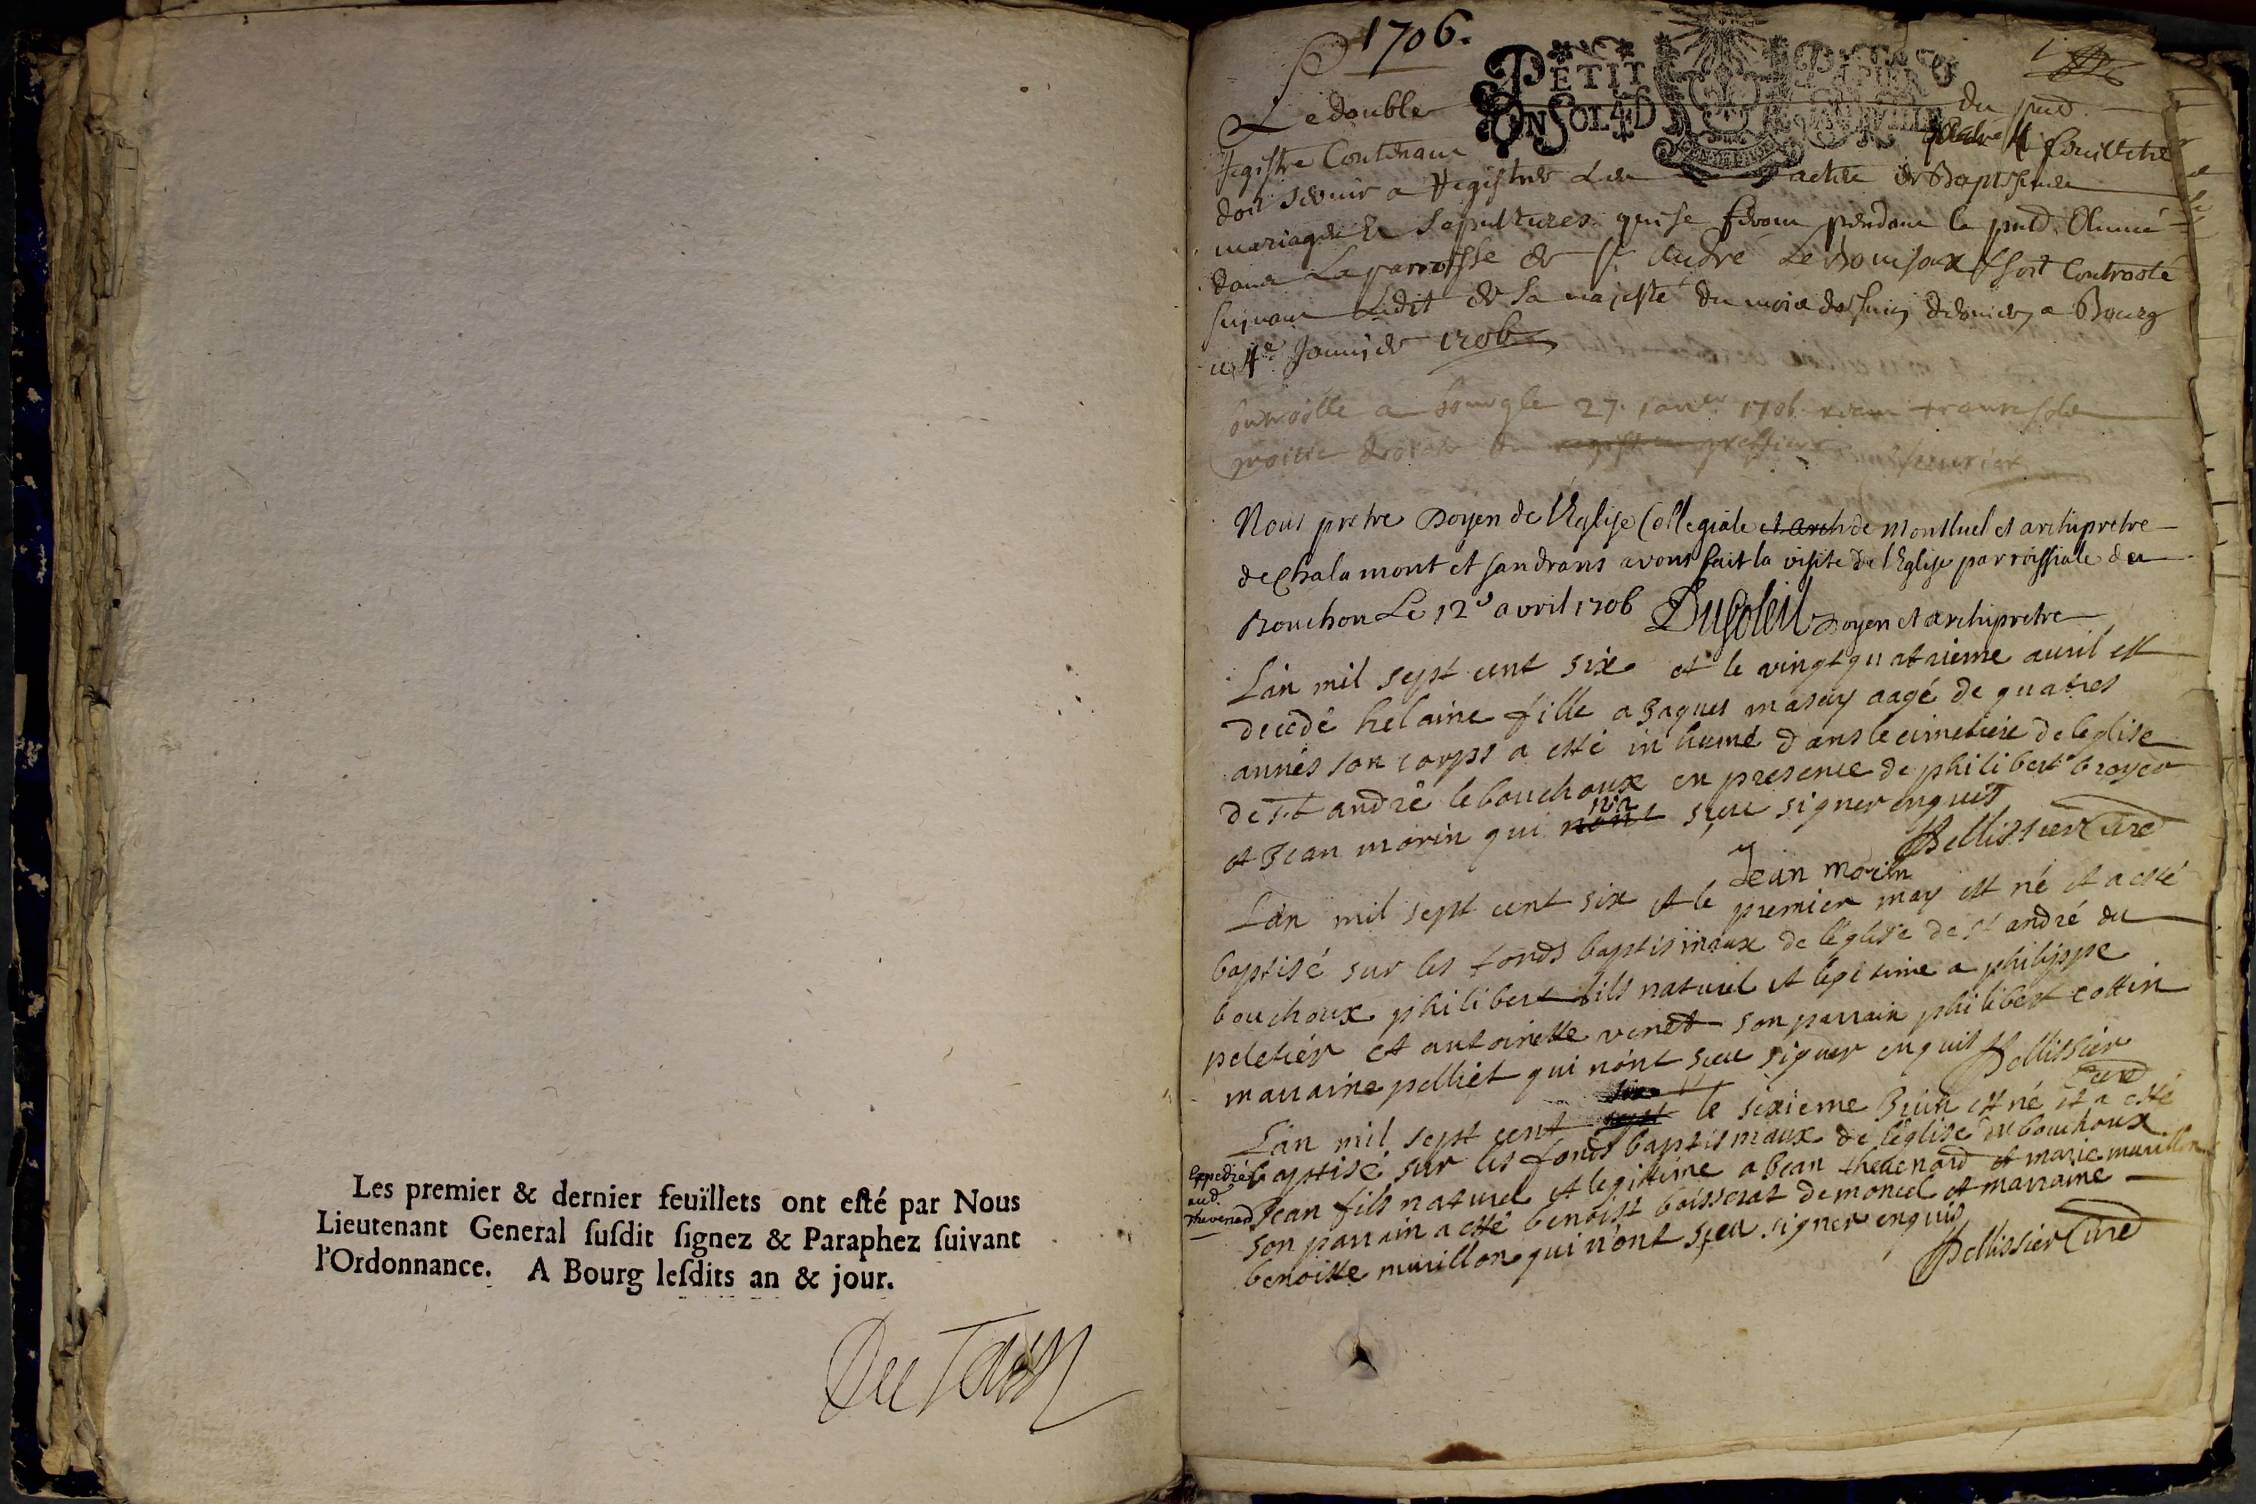 Les premier & dernier feuïllets ont eſté par Nous
Lieutenant General ſuſdit ſignez & Paraphez ſuivant
l'Ordonnance. A Bourg leſdits an & jour.
1706.
PETIT PAPIER
UN SOL 4 D
Le double du pnt
Registre Contenant quatre 4 feuillets
doit servir a Registrer Les actes de Baptesmes
mariages & Sepultures qui se feront pendant la pnte Année
dans La parroisse de St André Le Bouchoux Et sort Controolé
suivant Ledit de Sa majesté du mois de Juin dernier a Bourg
ce 4e Janvier 1706
27. 1706
Nous pretre Doyen de l'Eglise Collegiale et arch de Montluel et archipretre
de Chalamont et Sandrans avons fait la visite de l'Eglise parroissiale du
Bouchou Le 12e avril 1706 Doyen et archipretre
Lan mil sept cent six et le vingt quatrieme auril est
decedé helaine fille a Jaques masuy aagé de quatres
annés son corps a esté in humé dans le cimetiere de leglise
de st andré le bouchoux en presence de philibert broyer
et Jean morin qui nont sçeu signer enquis
Jean morin Pellissier Curé
Lan mil sept cent six et le premier may est né et a esté
baptisé sur les fonds baptismaux de léglise de st andré du
bouchoux philibert fils naturel et legitime a philippe
peletier et antoinette venet son parrain philibert cottin
marraine pelliet qui nont sceu signer enquis Pellissier
Curé
Lan mil sept cent six le sixieme Juin est né et a esté
baptisé sur les fonds baptismaux de léglise du bouchoux
Jean fils naturel et legitime a Jean thevenard et marie murillon
son parrain a esté benoist boisserat de moncel et marraine
benoitte murillon qui nont sçeu signer enquis
Pellissier Curé
Expedié
aud
thevenard